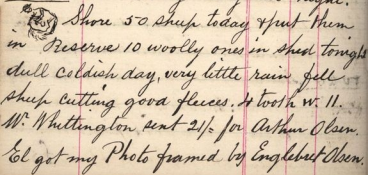 Shore 50 sheep today & put them
in Reserve 10 woolly ones in shed tonight
dull coldish day, very little rain fell
sheep cutting good fleeces. 4 tooth w. 11.
W. Whittington sent 21/- for Arthur Olsen.
El got my Photo framed by Englebret Olsen.